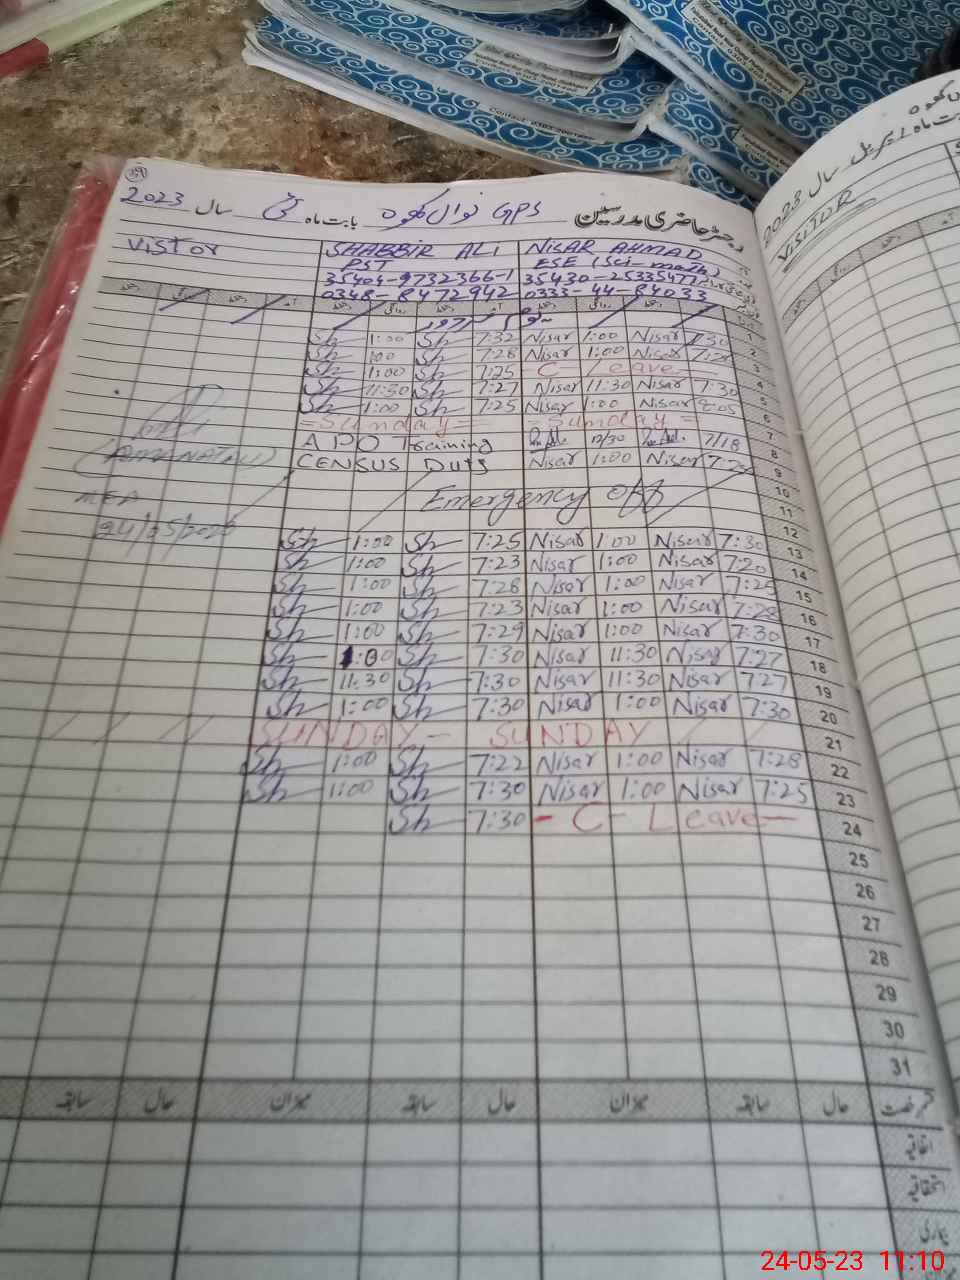 39
رجسٹر حاضری مدرسین GPS نواں کھوہ بابت ماہ مئی سال 2023
VISITOR SHABBIR ALI NISAR AHMAD
PST ESE (Sci-math)
35404-9732366-1 35430-2533547
0348-8472942 0333-44-84033
Sh 1:00 Sh 7:32 Nisar 1:00 Nisar 7:30 1
Sh 1:00 Sh 7:28 Nisar 1:00 Nisar 2
Sh 1:00 Sh 7:25 C- Leave 3
Sh 11:30 Sh 7:27 Nisar 11:30 Nisar 7:30 4
Sh 1:00 Sh 7:25 Nisar 1:00 Nisar 5
=Sunday= -Sunday= 6
Training 12/30 7/18 7
CENSUS Duty Nisar 1:00 Nisar 8
9
Emergency off 10
11
MEA
Sh 1:00 Sh 7:25 Nisar 1:00 Nisar 7:30 12
Sh 1:00 Sh 7:23 Nisar 1:00 Nisar 7:20 13
Sh 1:00 Sh 7:28 Nisar 1:00 Nisar 7:25 14
Sh 1:00 Sh 7:23 Nisar 1:00 Nisar 7:28 15
Sh 1:00 Sh 7:29 Nisar 1:00 Nisar 7:30 16
Sh 1:00 Sh 7:30 Nisar 11:30 Nisar 7:27 17
Sh 11:30 Sh 7:30 Nisar 11:30 Nisar 7:27 18
Sh 1:00 Sh 7:30 Nisar 1:00 Nisar 7:30 19
SUNDAY- SUNDAY 20
21
Sh 1:00 Sh 7:22 Nisar 1:00 Nisar 7:28 22
Sh 1:00 Sh 7:30 Nisar 1:00 Nisar 7:25 23
Sh 7:30 - C- Leave- 24
25
26
27
28
29
30
31
قسم رخصت حال سابقہ میزان حال سابقہ میزان حال سابقہ
اتفاقیہ
استحقاقیہ
بیماری
میزان
بابت ماہ اپریل سال 2023
VISITOR
24-05-23 11:10